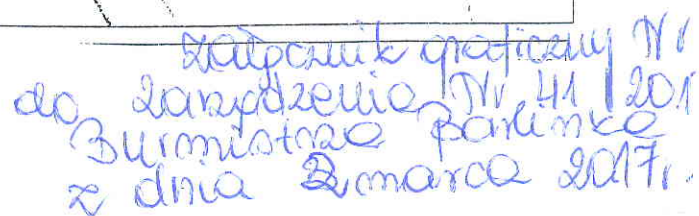 załącznik graficzny Nr
do zarządzenia Nr 41/201
Burmistrza Barlinka
z dnia 2 marca 2017r.